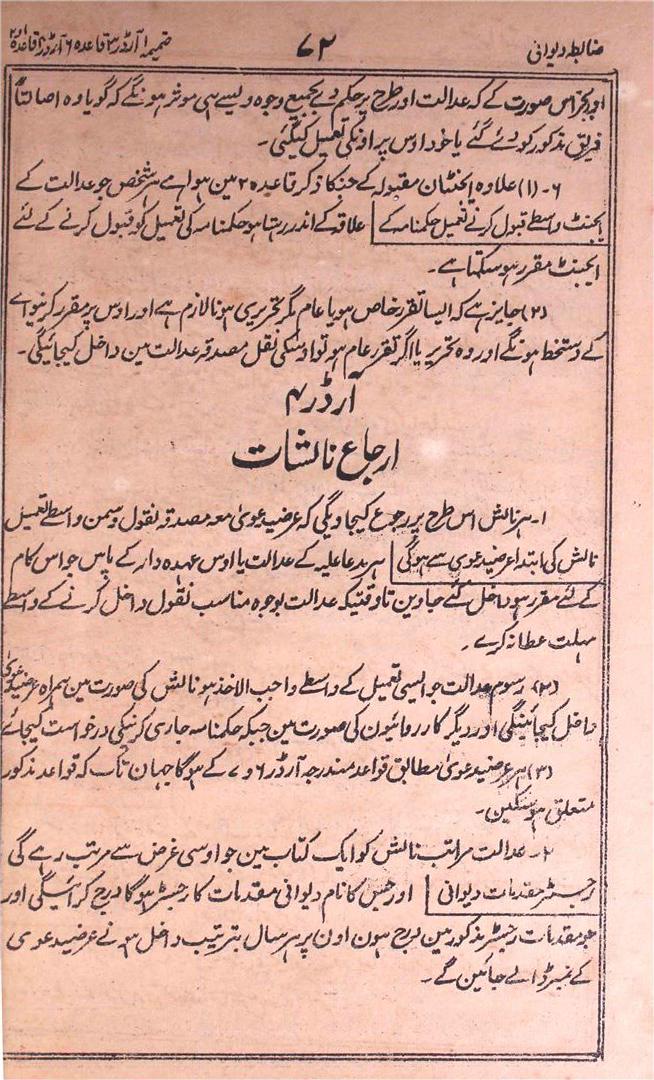 ضابطہ دیوانی
۷۲
ضمیمہ ۱ آرڈر ۳ قاعدہ ۶ آرڈر ۴ قاعدہ ۱ و ۲
اور بجز اس صورت کے کہ عدالت اور طرح پر حکم دے بجمیع وجوہ ویسے ہی موثر ہونگے کہ گویا وہ اصالتاً
فریق مذکور کو دئے گئے یا خود اوس پر اونکی تعمیل کیگئی۔
۶۔ (۱) علاوہ ایجنٹان مقبولہ کے جنکا ذکر قاعدہ ۲ مین ہوا ہے ہر شخص جو عدالت کے
ایجنٹ واسطے قبول کرنے تعمیل حکمنامہ کے علاقے کے اندر رہتا ہو حکمنامہ کی تعمیل کو قبول کرنے کے لئے
ایجنٹ مقرر ہو سکتا ہے۔
(۲) جایز ہے کہ ایسا تقرر خاص ہو یا عام مگر تحریری ہونا لازم ہے اور اوس پر مقرر کرنیوالے
کے دستخط ہونگے اور وہ تحریر یا اگر تقرر عام ہو تو اوسکی نقل مصدقہ عدالت مین داخل کیجائیگی۔
آرڈر ۴
ارجاع نالشات
۱۔ ہر نالش اس طرح پر رجوع کیجاویگی کہ عرضیدعویٰ معہ مصدقہ نقول و سمن واسطے تعمیل
نالش کی ابتدا عرضیدعوی سے ہوگی ہر مدعاعلیہ کے عدالت یا اوس عہدہ دار کے پاس جو اس کام
کے لئے مقرر ہو داخل کئے جاوین تاوقتیکہ عدالت بوجوہ مناسب نقول داخل کرنے کے واسطے
مہلت عطا نہ کرے۔
(۲) رسوم عدالت جو ایسی تعمیل کے واسطے واجب الاخذ ہو نالش کی صورت مین ہمراہ عرضیدعویٰ
داخل کیجائینگی اور دیگر کارروائیون کی صورت مین جبکہ حکمنامہ جاری کرنیکی درخواست کیجائے
(۳) ہر عرضیدعویٰ مطابق قواعد مندرجہ آرڈر ۶ و ۷ کے ہوگا جہان تک کہ قواعد مذکور
متعلق ہو سکین۔
۲۔ عدالت مراتب نالش کو ایک کتاب مین جو اوسی غرض سے مرتب رہے گی
رجسٹر مقدمات دیوانی اور جس کا نام دیوانی مقدمات کا رجسٹر ہوگا درج کرائیگی اور
جو مقدمات رجسٹر مذکور مین درج ہون اون پر ہر سال بترتیب داخل ہونے عرضیدعوی
کے نمبر ڈالے جائین گے۔